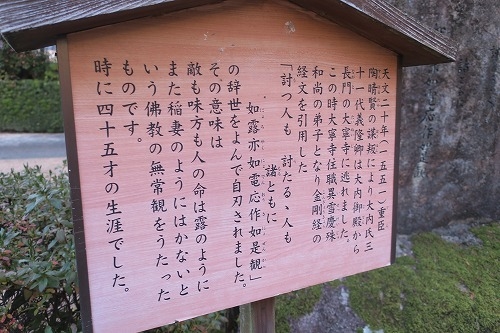 天文二十年(一五五一)重臣
陶晴賢の謀叛により大内氏三
十一代義隆卿は大内御殿から
長門の大寧寺に逃れました。
この時大寧寺住職異雪慶殊
和尚の弟子となり金剛経の
経文を引用した
「討つ人も 討たるゝ人も
諸ともに
如露亦如電応作如是観」
の辞世をよんで自刃されました。
その意味は
敵も味方も人の命は露のように
また稲妻のようにはかないと
いう佛教の無常観をうたった
ものです。
時に四十五才の生涯でした。